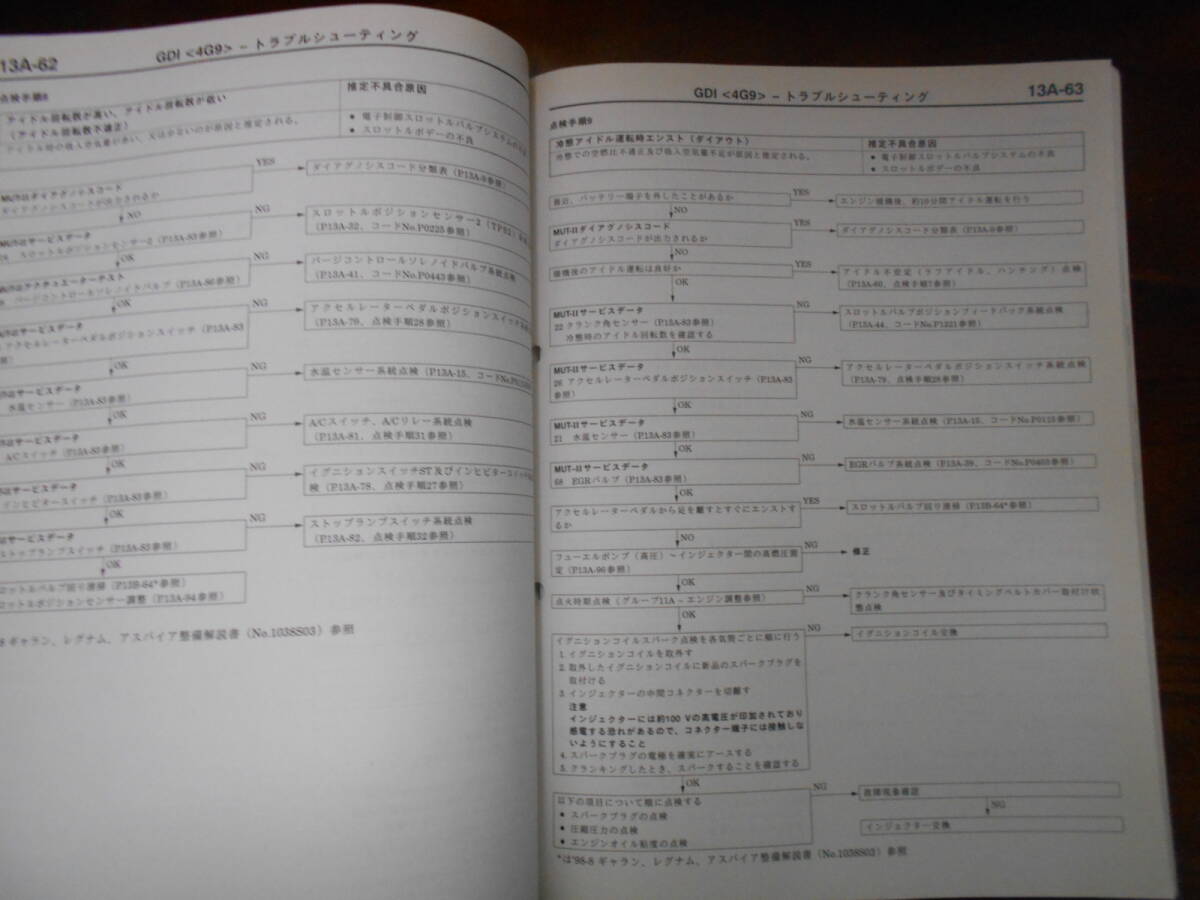 13A-62
GDI <4G9> − トラブルシューティング
点検手順8
アイドル回転数が高い、アイドル回転数が低い
（アイドル回転数不適正）
推定不具合原因
● 電子制御スロットルバルブシステムの不良
● スロットルボデーの不良
MUT-IIダイアグノシスコード
ダイアグノシスコードが出力されるか
YES
ダイアグノシスコード分類表（P.13A-9参照）
NO
MUT-IIサービスデータ
スロットルポジションセンサー2（P.13A-83参照）
NG
スロットルポジションセンサー2（TPS2）
（P.13A-32、コードNo.P0225参照）
OK
MUT-IIアクチュエーターテスト
パージコントロールソレノイドバルブ（P.13A-86参照）
NG
パージコントロールソレノイドバルブ系統点検
（P.13A-41、コードNo.P0443参照）
OK
サービスデータ
アクセルレーターペダルポジションスイッチ（P.13A-83
NG
アクセルレーターペダルポジションスイッチ
（P.13A-79、点検手順28参照）
OK
サービスデータ
水温センサー（P.13A-83参照）
NG
水温センサー系統点検（P.13A-15、コードNo.
OK
サービスデータ
A/Cスイッチ（P.13A-83参照）
NG
A/Cスイッチ、A/Cリレー系統点検
（P.13A-81、点検手順31参照）
OK
サービスデータ
インヒビタースイッチ（P.13A-83参照）
NG
イグニションスイッチST及びインヒビタースイッチ
検（P.13A-78、点検手順27参照）
OK
サービスデータ
ストップランプスイッチ（P.13A-83参照）
NG
ストップランプスイッチ系統点検
（P.13A-82、点検手順32参照）
OK
ロットルバルブ回り清掃（P.13B-64*参照）
ロットルポジションセンサー調整（P.13A-94参照）
8 ギャラン、レグナム、アスパイア整備解説書（No.1038S03）参照
GDI <4G9> − トラブルシューティング
13A-63
点検手順9
冷態アイドル運転時エンスト（ダイアウト）
冷態での空燃比不適正及び吸入空気量不足が原因と推定される。
推定不具合原因
● 電子制御スロットルバルブシステムの不良
● スロットルボデーの不良
最近、バッテリー端子を外したことがあるか
YES
エンジン暖機後、約10分間アイドル運転を行う
NO
MUT-IIダイアグノシスコード
ダイアグノシスコードが出力されるか
YES
ダイアグノシスコード分類表（P.13A-9参照）
NO
暖機後のアイドル運転は良好か
YES
アイドル不安定（ラフアイドル、ハンチング）点検
（P.13A-60、点検手順7参照）
OK
MUT-IIサービスデータ
22 クランク角センサー（P.13A-83参照）
冷態時のアイドル回転数を確認する
NG
スロットルバルブポジションフィードバック系統点検
（P.13A-44、コードNo.P1221参照）
OK
MUT-IIサービスデータ
26 アクセルレーターペダルポジションスイッチ（P.13A-83
参照）
NG
アクセルレーターペダルポジションスイッチ系統点検
（P.13A-79、点検手順28参照）
OK
MUT-IIサービスデータ
21 水温センサー（P.13A-83参照）
NG
水温センサー系統点検（P.13A-15、コードNo.P0115参照）
OK
MUT-IIサービスデータ
68 EGRバルブ（P.13A-83参照）
NG
EGRバルブ系統点検（P.13A-39、コードNo.P0403参照）
OK
アクセルレーターペダルから足を離すとすぐにエンストす
るか
YES
スロットルバルブ回り清掃（P.13B-64*参照）
NO
フューエルポンプ（高圧）〜インジェクター間の高燃圧測
定（P.13A-96参照）
NG
修正
OK
点火時期点検（グループ11A − エンジン調整参照）
NG
クランク角センサー及びタイミングベルトカバー取付け状
態点検
OK
イグニションコイルスパーク点検を各気筒ごとに順に行う
1. イグニションコイルを取外す
2. 取外したイグニションコイルに新品のスパークプラグを
取付ける
3. インジェクターの中間コネクターを切離す
注意
インジェクターには約100 Vの高電圧が印加されており
感電する恐れがあるので、コネクター端子には接触しな
いようにすること
4. スパークプラグの電極を確実にアースする
5. クランキングしたとき、スパークすることを確認する
NG
イグニションコイル交換
OK
以下の項目について順に点検する
● スパークプラグの点検
● 圧縮圧力の点検
● エンジンオイル粘度の点検
NG
故障現象確認
NG
インジェクター交換
*は'98-8 ギャラン、レグナム、アスパイア整備解説書（No.1038S03）参照